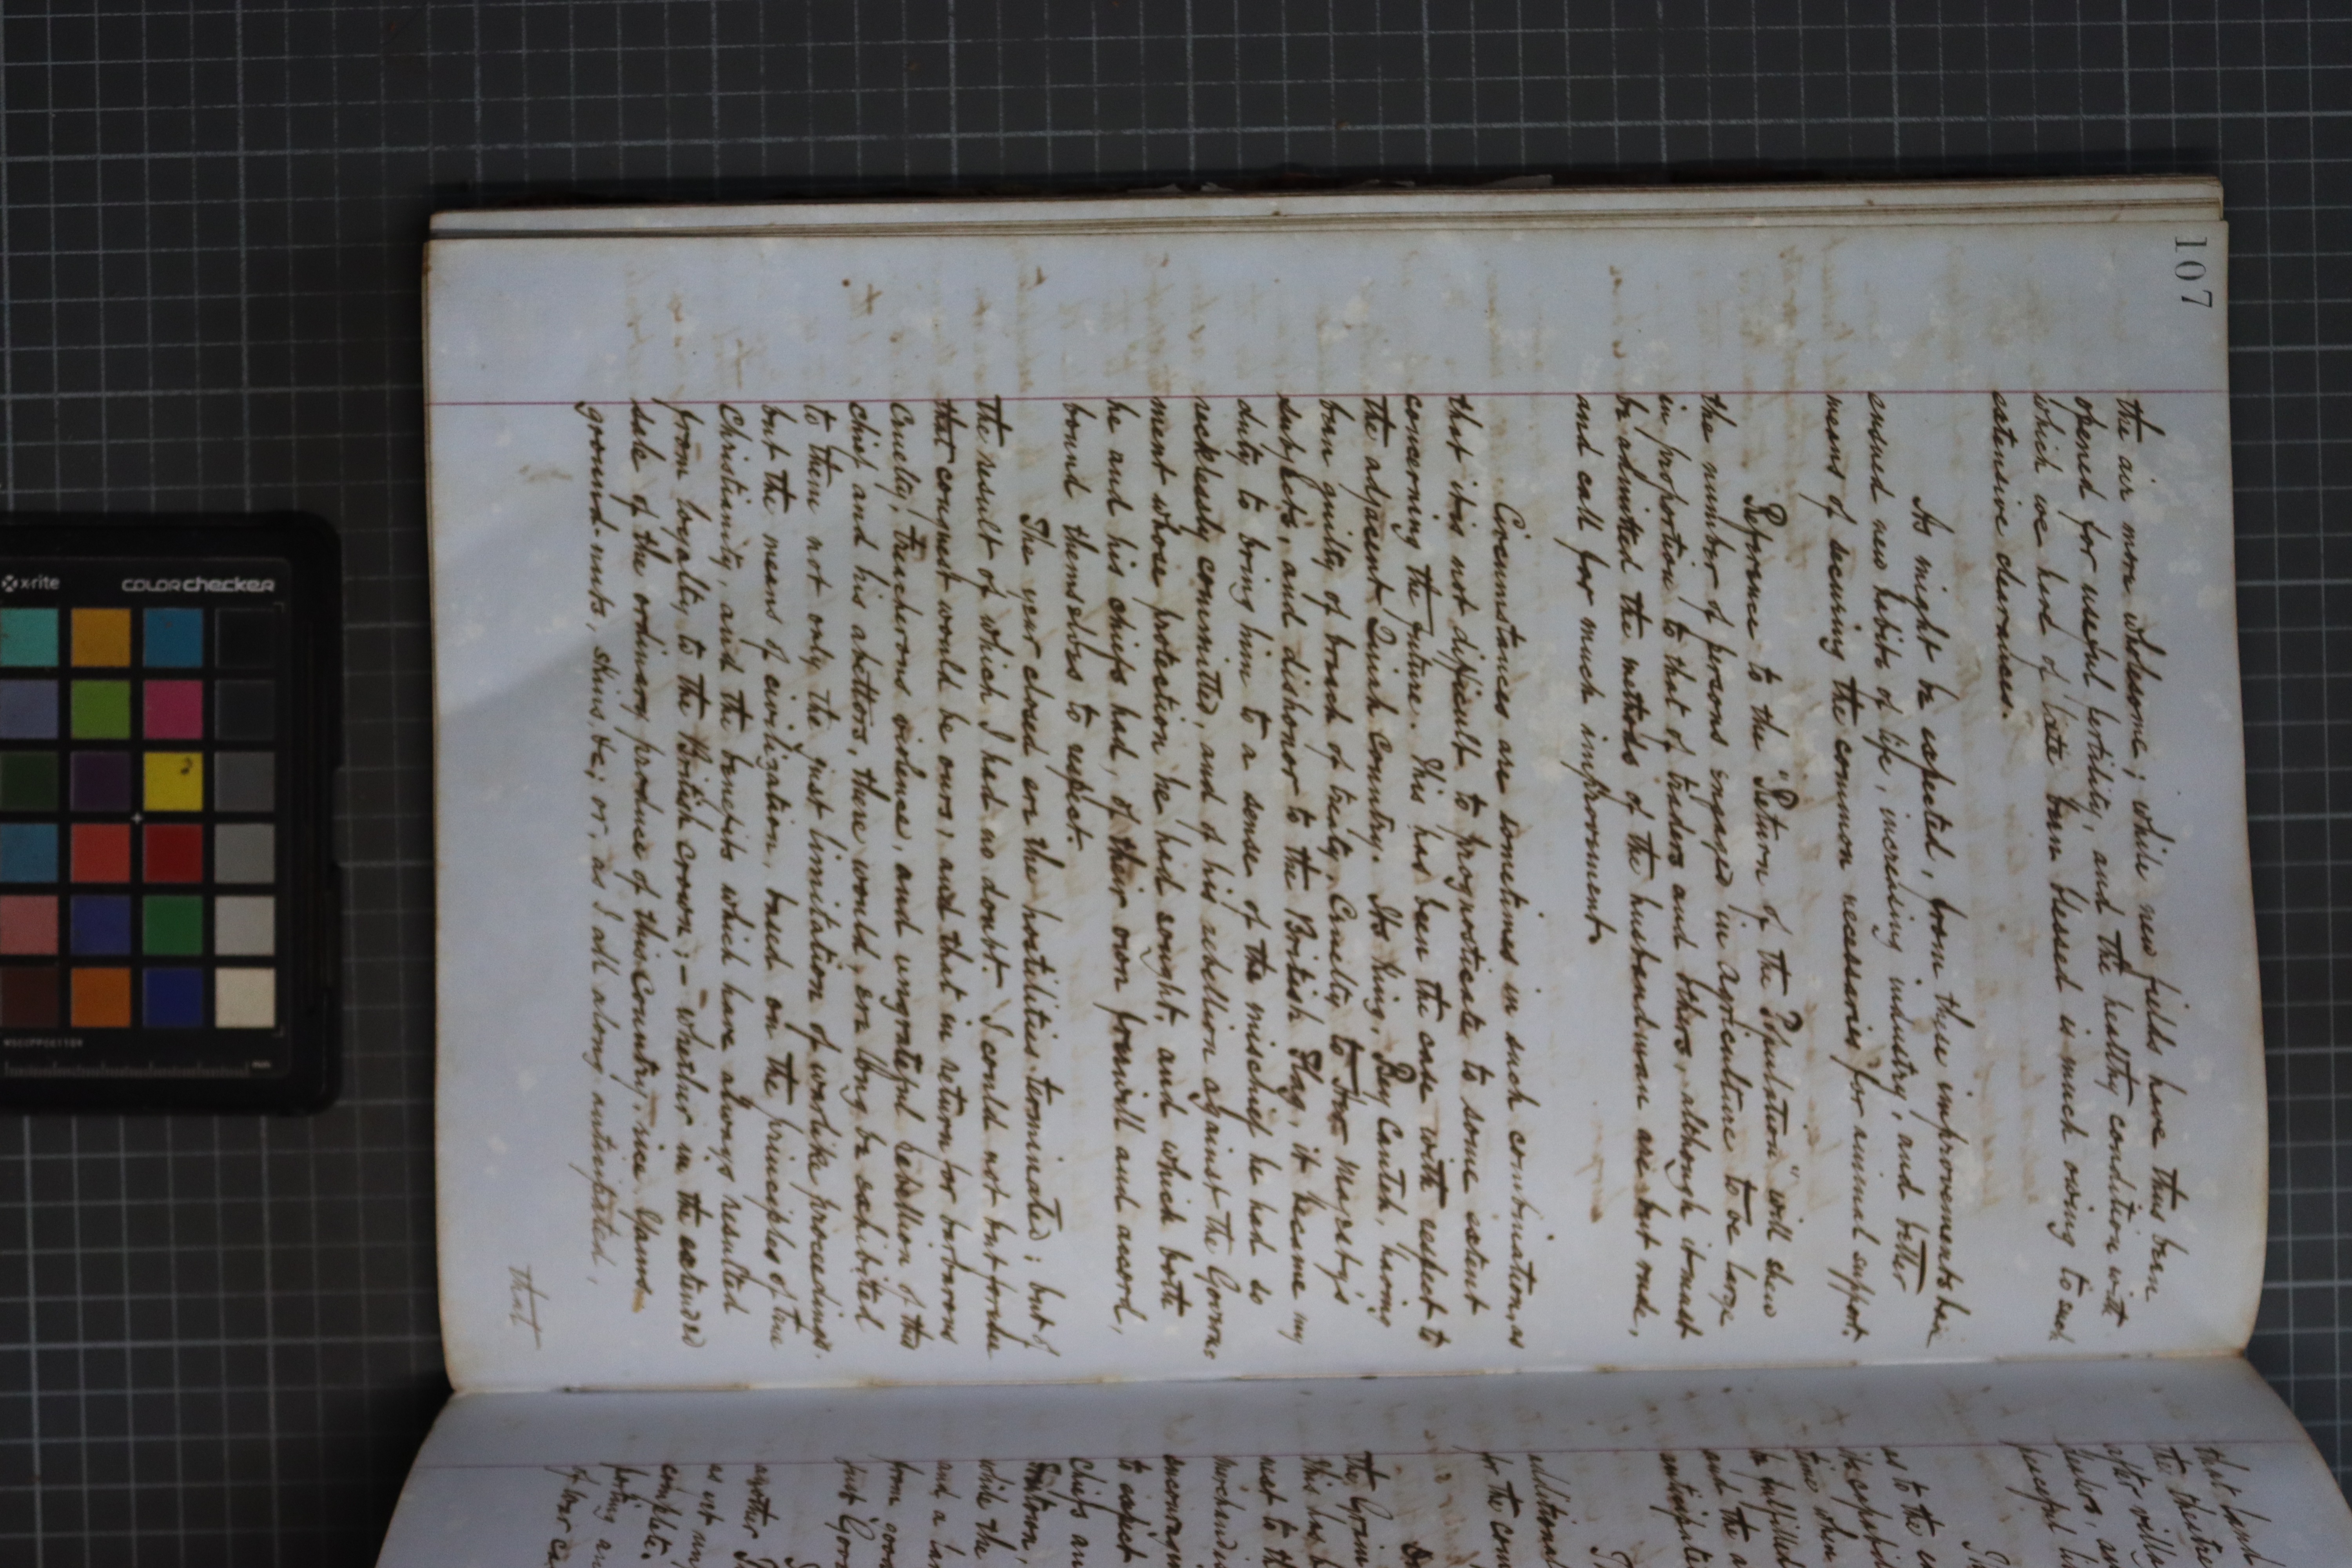 107
the air more wholesome; while new fields have thus been
opened for useful fertility, and the healthy condition with
which we have of late been blessed is much owing to such
extensive clearances.
As might be expected, from these improvements have
ensued new habits of life, increasing industry, and better
means of securing the common necessaries for animal support.
Reference to the "Return of the Population" will shew
the number of persons engaged in agriculture to be large
in proportion to that of traders and others, although it must
be admitted the methods of the husbandman are but rude,
and call for much improvement.
Circumstances are sometimes in such combination, as
that it is not difficult to prognosticate to some extent
concerning the future. This has been the case with respect to
the adjacent Quiah Country. Its King, Bey Canteh, having
been guilty of breach of treaty, Cruelty to Her Majesty's
subjects, and dishonor to the British Flag, it became my
duty to bring him to a sense of the mischief he had so
recklessly committed, and of his rebellion against the Govern-
ment whose protection he had sought, and which both
he and his chiefs had, of their own freewill and accord,
bound themselves to respect.
The year closed ere the hostilities terminated; but of
the result of which I had no doubt. I could not but foresee
that conquest would be ours, and that in return for barbarous
Cruelty, treacherous violence, and ungrateful rebellion of this
chief and his abettors, there would, ere long be exhibited
to them not only the just limitation of warlike proceedings,
but the means of civilization, based on the principles of true
Christianity, and the benefits which have always resulted
from loyalty to the British Crown; - whether in the extended
sale of the ordinary produce of this Country, rice, yams
ground-nuts, skins, &c; or, as I all along anticipated,
that
that
the
after
peaceful
as to the
time when
be fulfilled
and the
additional
for the
the
this has
next to the
to expect
Chiefs
while the
and a
from
just
another
as yet
of